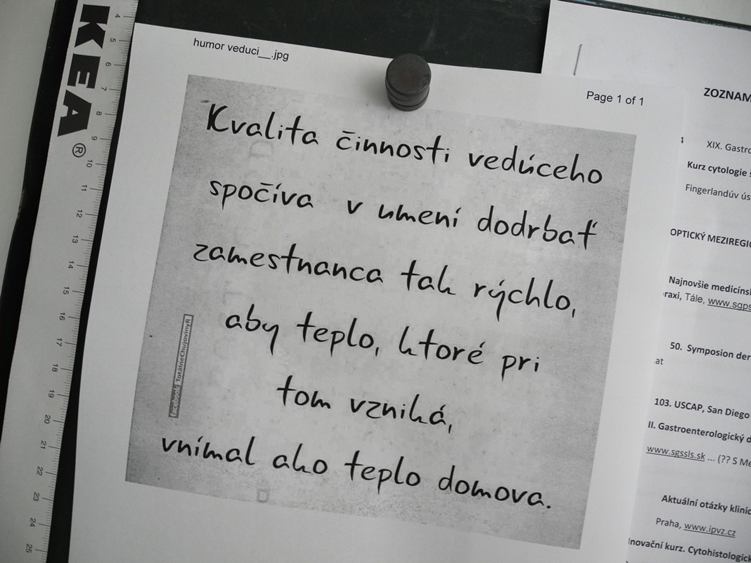 IKEA®
humor veduci__.jpg
Page 1 of 1
Kvalita činnosti vedúceho
spočíva v umení dodrbať
zamestnanca tak rýchlo,
aby teplo, ktoré pri
tom vzniká,
vnímal ako teplo domova.
4
5
6
7
8
9
10
11
12
13
14
15
16
17
18
19
20
21
22
23
24
25
ZOZNAM
XIX.
Kurz cytologie
Fingerlandův
OPTICKÝ
Najnovšie
Tále,
50. Symposion
at
103. USCAP, San Diego
II. Gastroenterologický
www.sgssls.sk ... (??
Aktuální otázky
Praha, www.ipvz.cz
kurz.